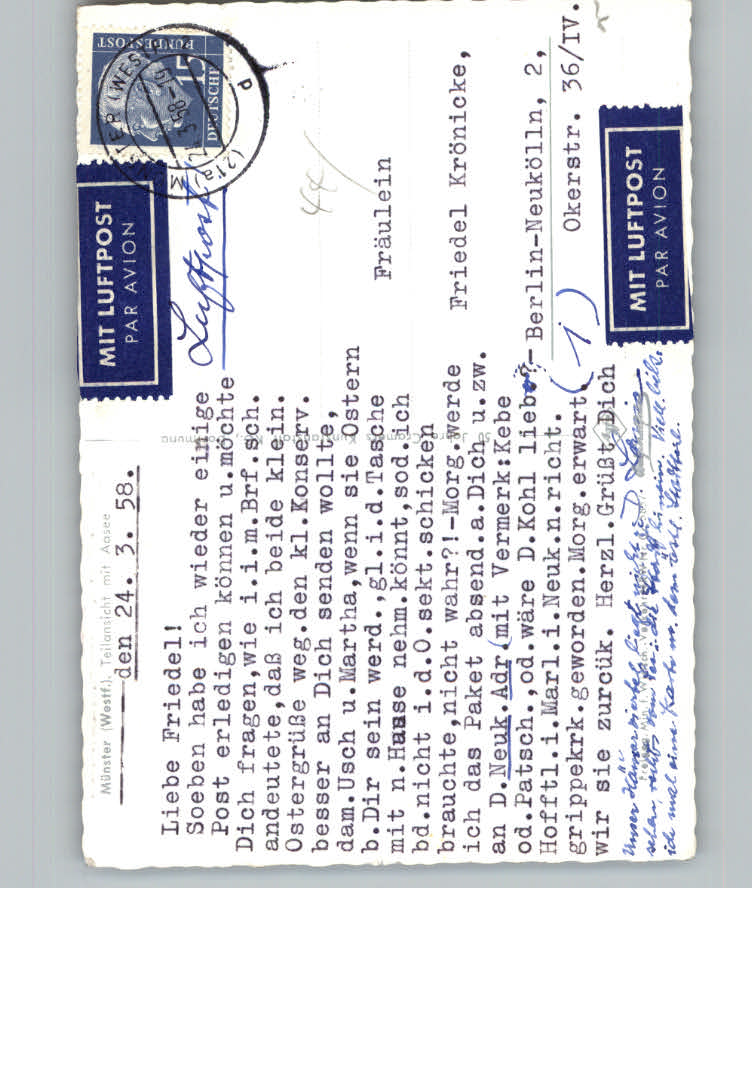 Münster (Westf.), Teilansicht mit Aasee
den 24. 3. 58.
Liebe Friedel!
Soeben habe ich wieder einige
Post erledigen können u.möchte
Dich fragen,wie i.i.m.Brf.sch.
andeutete,daß ich beide klein.
Ostergrüße weg.den kl.Konserv.
besser an Dich senden wollte,
dam.Usch u.Martha,wenn sie Ostern
b.Dir sein werd.,gl.i.d.Tasche
mit n.Hause nehm.könnt,sod.ich
bd.nicht i.d.O.sekt.schicken
brauchte,nicht wahr?!-Morg.werde
ich das Paket absend.a.Dich u.zw.
an D.Neuk.Adr.(mit Vermerk:Kebe
od.Patsch.,od.wäre D.Kohl lieb.?-
Hofftl.i.Marl.i.Neuk.n.richt.
grippekrk.geworden.Morg.erwart.
wir sie zurcük. Herzl.Grüßt Dich
Unser
ich mal eine
50 Jahre Cramers Kunstanstalt KG., Dortmund
MIT LUFTPOST
PAR AVION
Luftpost
DEUTSCHE
BUNDESPOST
15
MÜNSTER (WESTF)
(21a)
p
44
Fräulein
Friedel Krönicke,
Berlin-Neukölln, 2,
Okerstr. 36/IV.
(i)
MIT LUFTPOST
PAR AVION